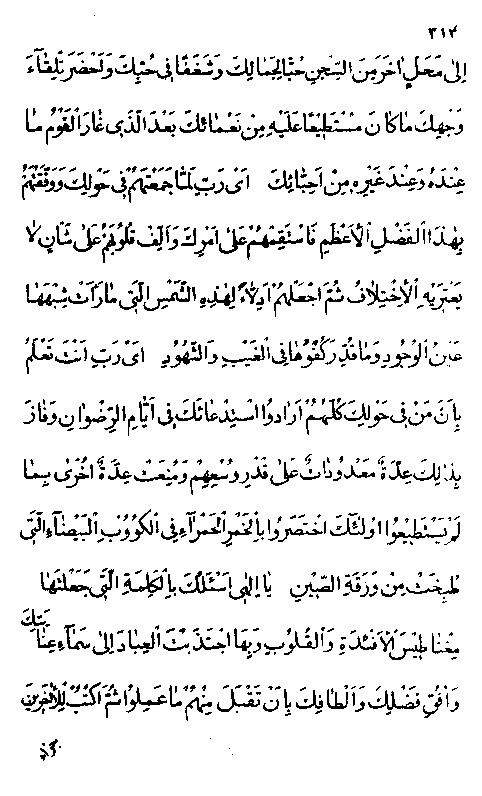 ٣١٤
اِلٰى مَحَلٍ اٰخَرَ مِنَ السِّجْنِ حُبًّا لِجَمَالِكَ وَشَغَفًا فِى حُبِّكَ وَلَحَضَرَ تِلْقَآءَ
وَجْهِكَ مَا كَانَ مُسْتَطِيْعًا عَلَيْهِ مِنْ نَعْمَائِكَ بَعْدَ الَّذِى غَارَ الْقَوْمُ مَا
عِنْدَهُ وَعِنْدَ غَيْرِهِ مِنْ اَحِبَّائِكَ اَىْ رَبِّ لَمَّا جَمَعْتَهُمْ فِى حَوْلِكَ وَوَفَّقْتَهُمْ
بِهٰذَا الْفَضْلِ الْاَعْظَمِ فَاسْتَقِمْهُمْ عَلٰى اَمْرِكَ وَاَلِّفْ قُلُوْبَهُمْ عَلٰى شَاْنٍ لَا
يَعْتَرِيْهِ الْاِخْتِلَافُ ثُمَّ اجْعَلْهُمْ اَدِلَّاءً لِهٰذِهِ الشَّمْسِ الَّتِى مَا رَاَتْ شِبْهَهَا
عَيْنُ الْوُجُوْدِ وَمَا قُدِّرَ كُفْوُهَا فِى الْغَيْبِ وَالشُّهُوْدِ اَىْ رَبِّ اَنْتَ تَعْلَمُ
بِاَنَّ مَنْ فِى حَوْلِكَ كُلَّهُمْ اَرَادُوا اسْتِدْعَائَكَ فِى اَيَّامِ الرِّضْوَانِ وَفَازَ
بِذٰلِكَ عِدَّةٌ مَعْدُوْدَاتٌ عَلٰى قَدْرِ وُسْعِهِمْ وَمُنِعَتْ عِدَّةٌ اُخْرٰى بِمَا
لَمْ يَسْتَطِيْعُوا اُولٰئِكَ اخْتَصَرُوا بِالْخَمْرِ الْحَمْرَآءِ فِى الْكُؤُوْبِ الْبَيْضَآءِ الَّتِى
طُبِخَتْ مِنْ وَرَقَةِ الصِّيْنِ يَا اِلٰهِى اَسْئَلُكَ بِالْكَلِمَةِ الَّتِى جَعَلْتَهَا
مِغْنَاطِيْسَ الْاَفْئِدَةِ وَالْقُلُوْبِ وَبِهَا اجْتَذَبْتَ الْعِبَادَ اِلٰى سَمَآءِ عِنَايَتِكَ
وَاُفُقِ فَضْلِكَ وَاَلْطَافِكَ بِاَنْ تَقْبَلَ مِنْهُمْ مَا عَمِلُوا ثُمَّ اكْتُبْ لِلْاٰخَرِيْنَ